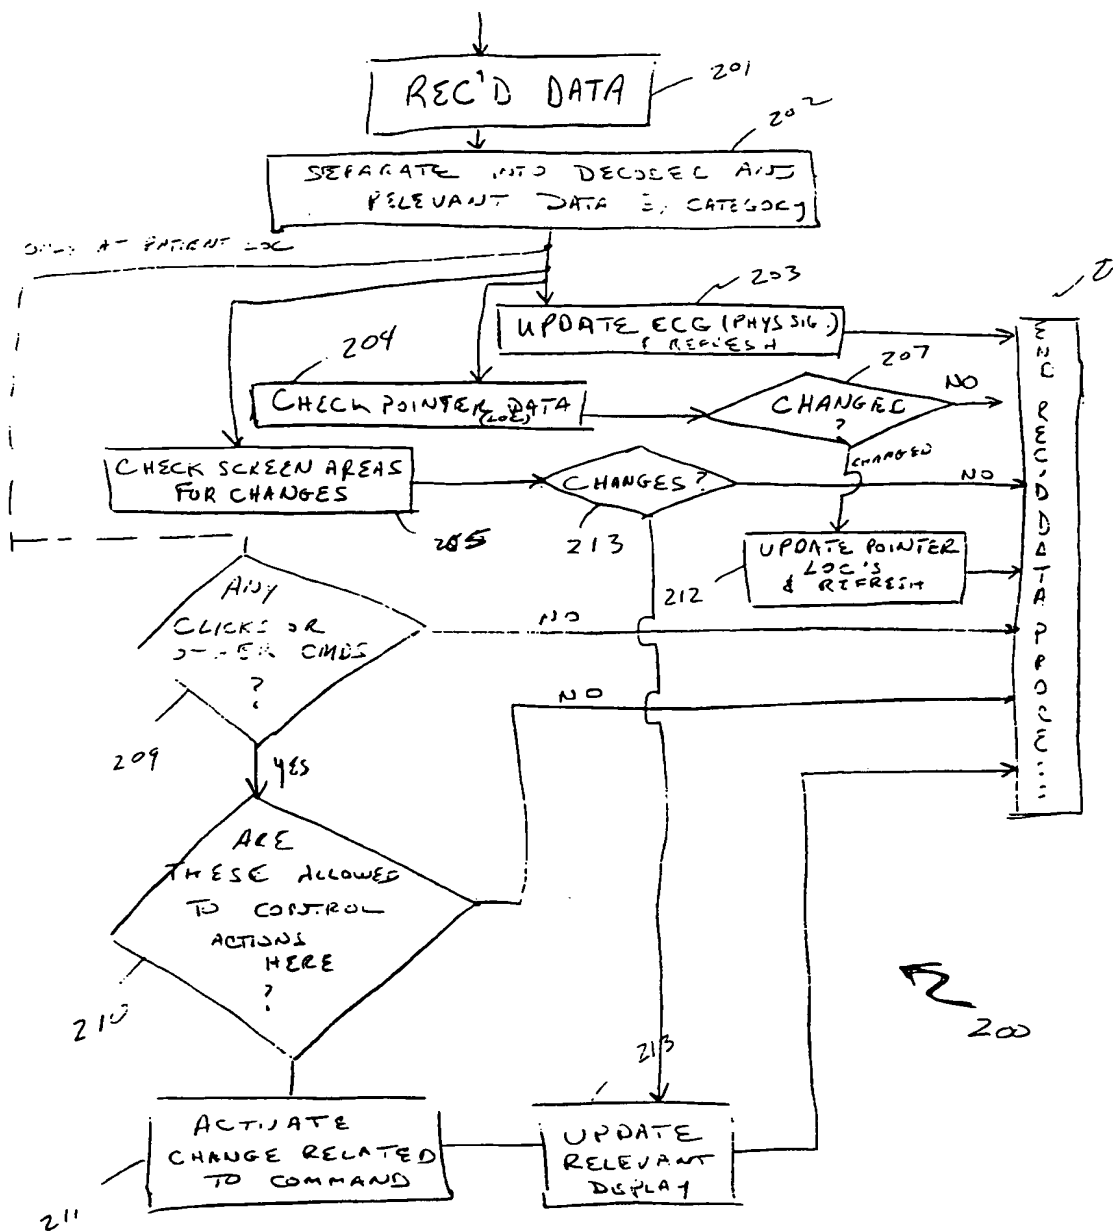 REC'D DATA
201
202
SEPARATE INTO DECODED AND
RELEVANT DATA BY CATEGORY
ONLY AT PATIENT LOC
203
UPDATE ECG (PHYS SIG.)
& REFRESH
204
CHECK POINTER DATA
(LOC)
207
CHANGED
?
NO
CHANGED
CHECK SCREEN AREAS
FOR CHANGES
205
CHANGES?
NO
213
UPDATE POINTER
LOC'S
& REFRESH
212
ANY
CLICKS OR
OTHER CMDS
?
NO
209
YES
NO
ARE
THESE ALLOWED
TO CONTROL
ACTIONS
HERE
?
210
END REC'D DATA
200
213
ACTIVATE
CHANGE RELATED
TO COMMAND
211
UPDATE
RELEVANT
DISPLAY